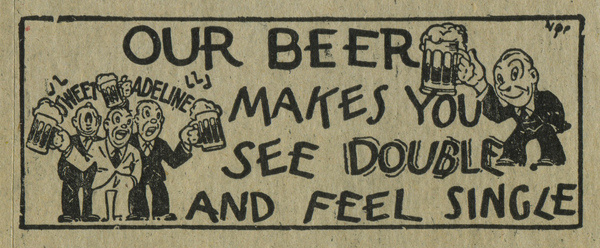 OUR BEER
SWEET ADELINE
MAKES YOU
SEE DOUBLE
AND FEEL SINGLE